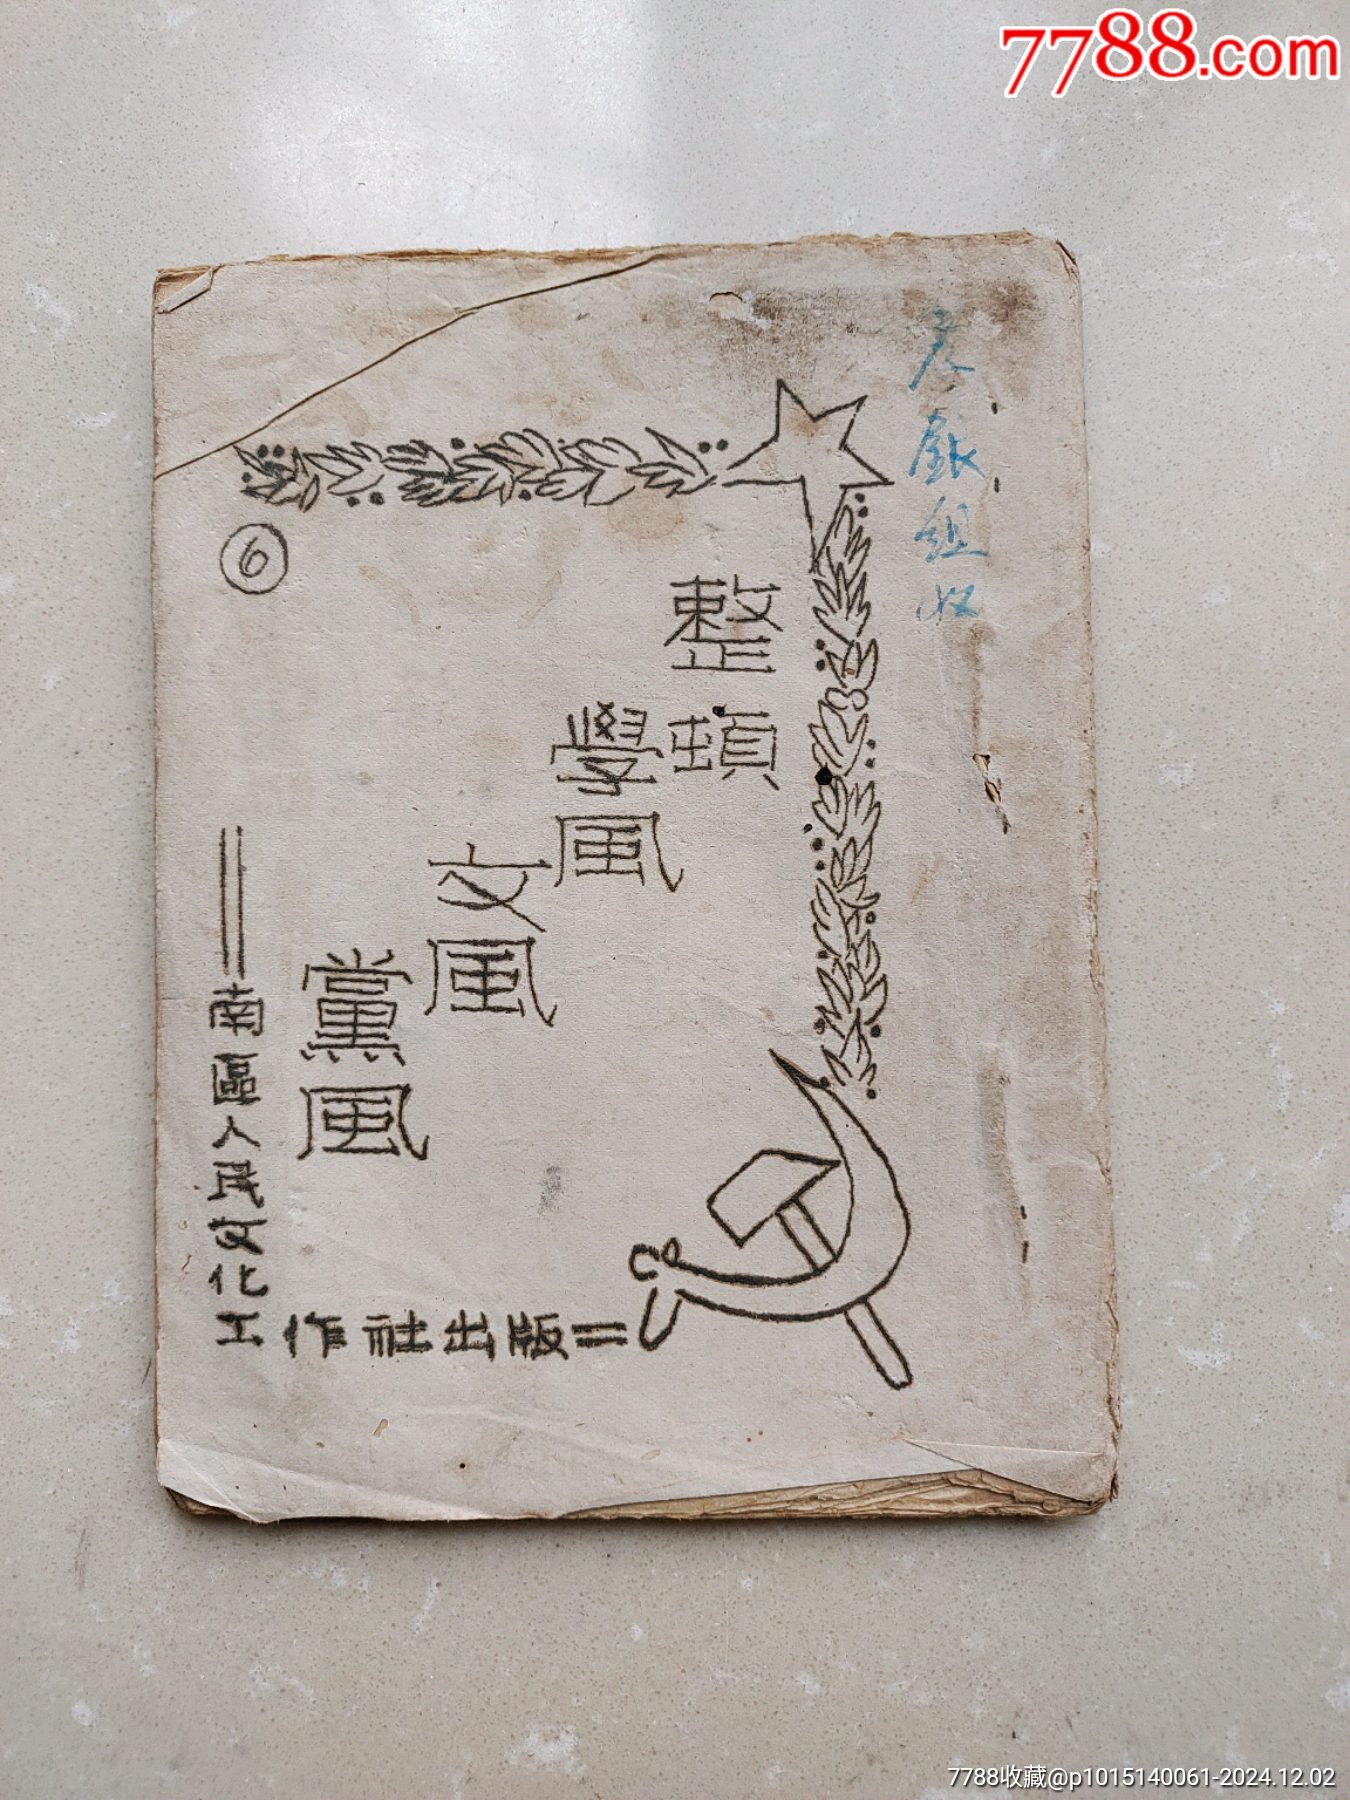 7788.com
組
⑥
整頓
學風
文風
黨風
南區人民文化工作社出版
7788收藏@p1015140061-2024.12.02